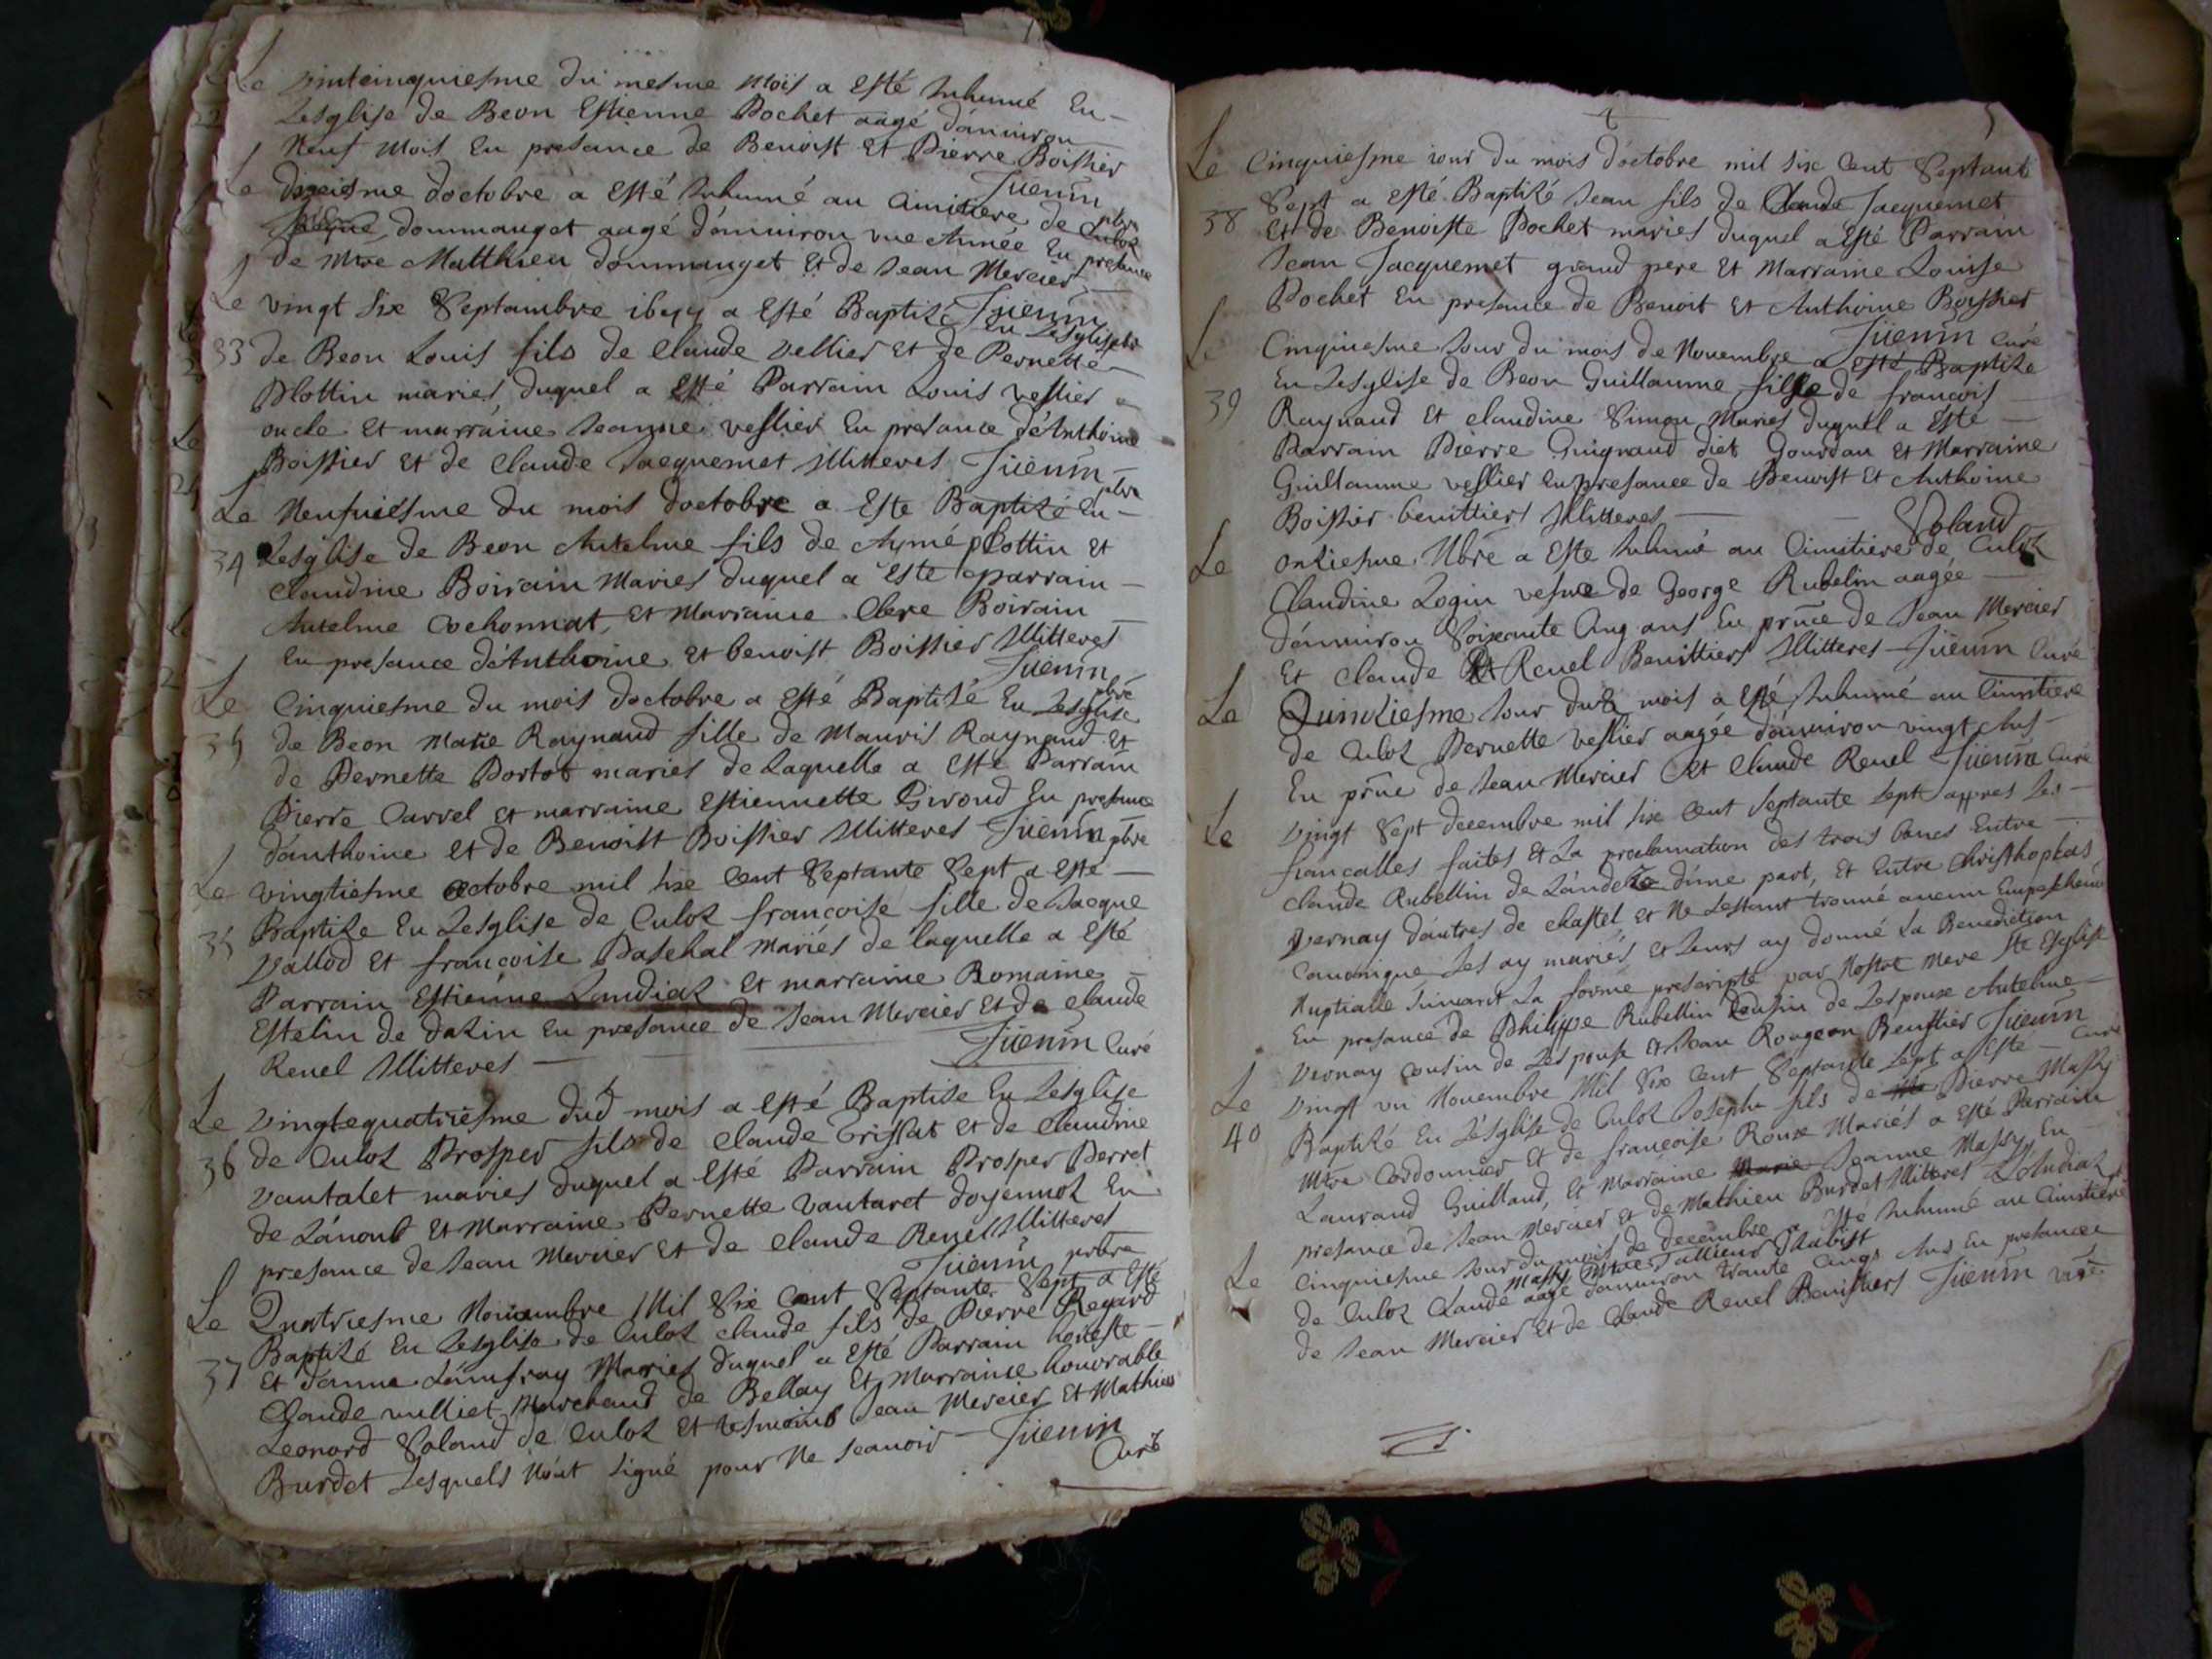 Le vintcinquiesme du mesme mois a esté Inhumé En
Lesglise de Beon Estienne Pochet aagé d'anuiron
Neuf mois En presance de Benoist Et Pierre Boissier
Juenin pbre
Le doctobre a Esté Inhumé au Cimitiere de Culoz
dommanget aagé d'anuiron vne Année En presance
de Mtre Matthieu dommanget Et de Jean Mercier
Juenin
Le vingt six Septambre 1677 a Esté Baptizé En Lesglise
33 de Beon Louis fils de Claude vellier Et de Pernette
Plottin maries duquel a Esté Parrain Louis vellier
oncle Et marraine Jeanne vellier En presance d'Anthoine
Boissier Et de Claude Jacquemet Illitteres Juenin pbre
Le Neufuiesme du mois doctobre a Este Baptizé En
34 Lesglise de Beon Antelme fils de Aymé plottin Et
Claudine Boirain Maries duquel a Este parrain
Antelme Cochonnat, Et Marraine Clere Boirain
En presance d'Anthoine Et benoist Boissier Illitteres
Juenin pbre
Le Cinquiesme du mois doctobre a Esté Baptizé En Lesglise
35 de Beon Marie Raynaud fille de Mauris Raynaud Et
de Pernette Portot mariés de Laquelle a Esté Parrain
Pierre Carrel Et marraine Estiennette Giroud En presance
d'anthoine Et de Benoist Boissier Illitteres Juenin pbre
Le vingtiesme octobre mil six Cent Septante Sept a Este
35 Baptize En Lesglise de Culoz françoise fille de Jacque
Vallod Et françoise Paschal Mariés de laquelle a Esté
Parrain Estienne Landiaz Et marraine Romaine
Estelin de dazin En presance de Jean Mercier Et de Claude
Reuel Illitteres
Juenin Curé
Le vingtequatriesme dud mois a Esté Baptize En Lesglise
36 de Culoz Prosper fils de Claude Trissat Et de Claudine
Vantalet maries duquel a Esté Parrain Prosper Perret
de Lánout Et Marraine Pernette Vantaret doyennoz En
presance de Jean Mercier Et de Claude Reuel Illitteres
Juenin prbre
Le Quatriesme Nouembre Mil Six Cent Septante Sept a Esté
Baptizé En Lesglise de Culoz Claude fils de Pierre Regard
37 Et d'anne Lámfray Maries duquel a Esté Parrain honeste
Claude vulliet Marchand de Bellay Et Marraine honorable
Leonard Soland de Culoz Et tesmoins Jean Mercier Et Mathieu
Burdet Lesquels N'ont signé pour Ne scauoir Juenin
Curé
Le Cinquiesme iour du mois doctobre mil six Cent Septante
Sept a Esté Baptizé Jean fils de Claude Jacquemet
38 Et de Benoiste Pochet mariés duquel a Esté Parrain
Jean Jacquemet grand pere Et Marraine Louise
Pochet En presance de Benoit Et Anthoine Boissier
Juenin Curé
Le Cinquiesme Jour du mois de Nouembre a Esté Baptize
En Lesglise de Beon Guillaume fille de françois
39 Raynaud Et Claudine Simon Maries duquel a Este
Parrain Pierre Guignaud diet Gourdan Et Marraine
Guillaume vellier En presance de Benoist Et Anthoine
Boissier benittiers Illitteres Soland
Le onziesme Nbre a Este Inhumé au Cimitiere de Culoz
Claudine Login vefue de George Rubelin aagée
d'anuiron Soixante Cinq ans En prnce de Jean Mercier
Et Claude Reuel Benittiers Illitteres Juenin Curé
Le Quinziesme Jour dud mois a Esté Inhumé au Cimitiere
de Culoz Pernette vellier aagée d'anuiron vingt Ans
En prnce de Jean Mercier Et Claude Reuel Juenin Curé
Le vingt Sept decembre mil six Cent Septante Sept appres Les
fiançalles faites Et La proclamation des trois bancs Entre
Claude Rubellin de d'une part, Et Entre Christhophas
Vernay d'autres de Chastel Et Ne Sestant trouué aucun Empeschem
Canonique Les ay mariés Et Leurs ay donné La Benediction
Nuptialle suiuant La forme prescripte par Nostre Mere Ste Esglise
En presance de Philippe Rubellin Cousin de Lespoux Antelme
Vernay Cousin de Lespouse Et Jean Rougeon Benittier Juenin Curé
Le vingt vn Nouembre Mil Six Cent Septante Sept a Este
40 Baptizé En L'ésglise de Culoz Joseph fils de Pierre Massy
Mtre Cordonnier Et de françoise Roux Mariés a Esté Parrain
Laurand Guilland, Et Marraine Jeanne Massy En
presance de Jean Mercier Et de Mathieu Burdet Illitteres
Le Cinquiesme Jour du mois de decembre a Esté Inhumé au Cimitiere
de Culoz Claude Massy Mtre Tallieur
aagé d'anuiron trante Cinqs Ans En presance
de Jean Mercier Et de Claude Reuel Benittiers Juenin